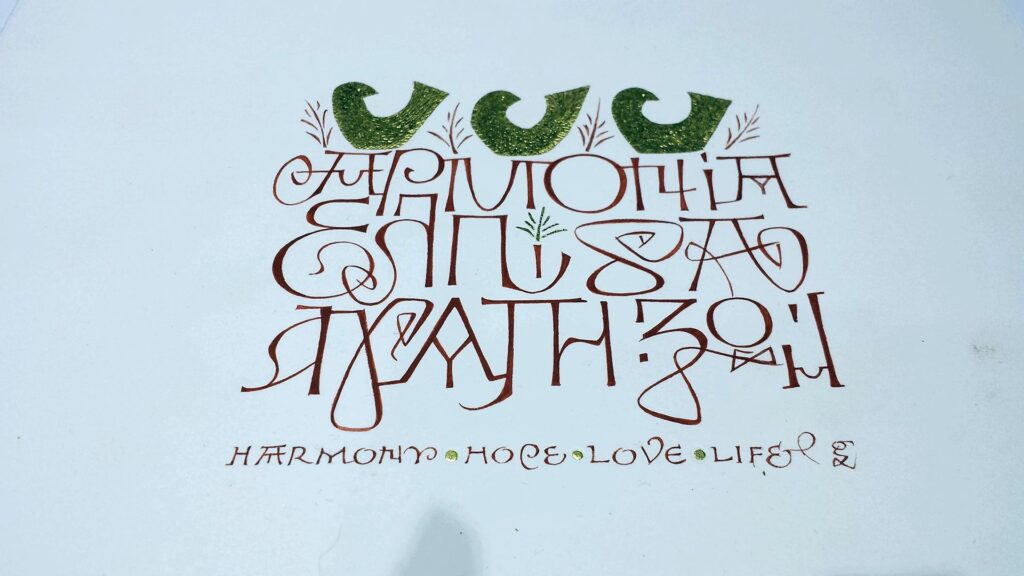 ΑΡΜΟΝΙΑ
ΕΛΠΙΔΑ
ΑΓΑΠΗ ΖΩΗ
HARMONY • HOPE • LOVE • LIFE